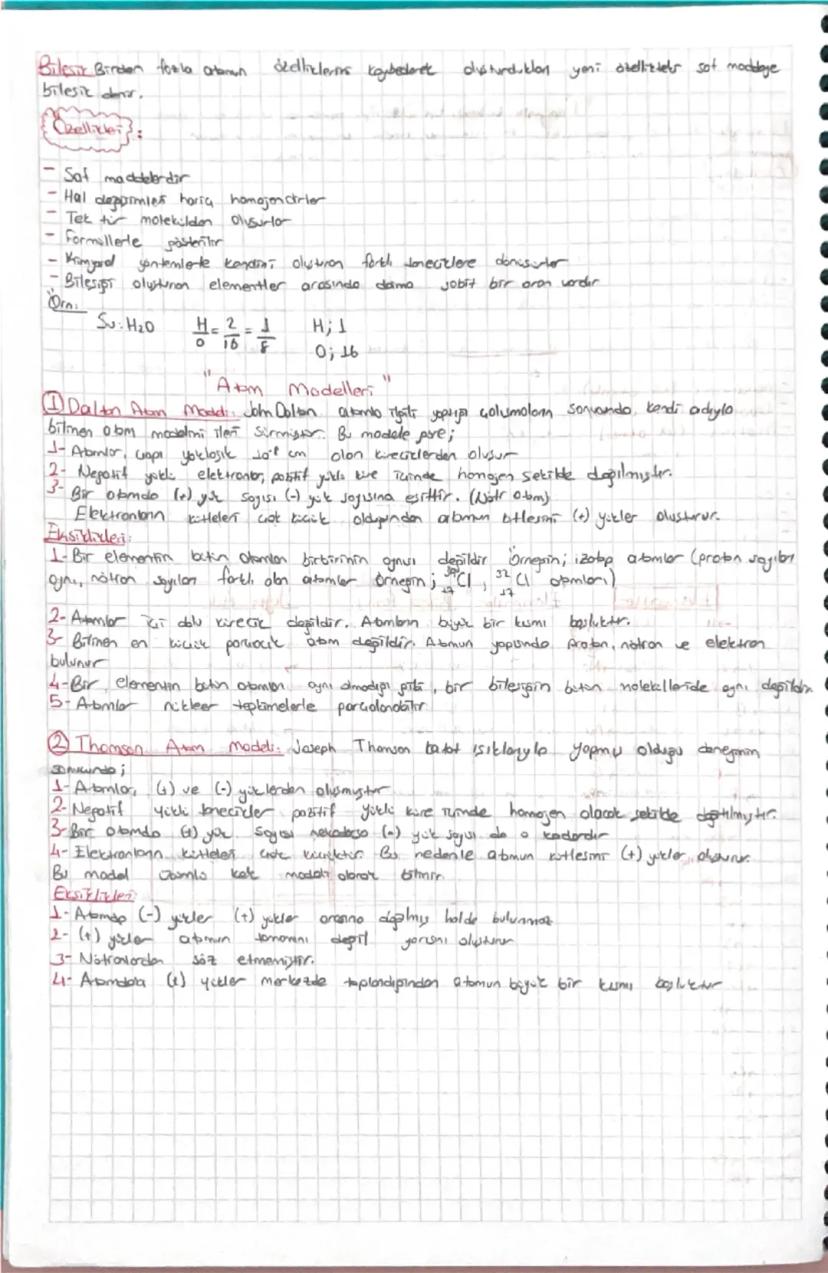 Bileşik Birden fazla atomun özelliklerini kaybederek oluşturdukları yeni özellikteki saf maddeye
bileşik denir.
Özellikleri:
- Saf maddelerdir
- Hal değişimleri hariç homojendirler
- Tek tür molekülden oluşurlar
- Formüllerle gösterilir
- Kimyasal yöntemlerle kendini oluşturan farklı taneciklere dönüşürler
- Bileşiği oluşturan elementler arasında daima sabit bir oran vardır
Örn:
Su: H2O H/O = 2/16 = 1/8 H; 1
O; 16
"Atom Modelleri"
1 Dalton Atom Modeli: John Dalton atomla ilgili yaptığı çalışmaların sonucunda kendi adıyla
bilinen atom modelini ileri sürmüştür. Bu modele göre;
1- Atomlar, çapı yaklaşık 10-8 cm olan küreciklerden oluşur
2- Negatif yüklü elektronlar, pozitif yüklü küre içinde homojen şekilde dağılmıştır.
3- Bir atomda (+) yük sayısı (-) yük sayısına eşittir. (Nötr atom)
Elektronların kütleleri çok küçük olduğundan atomun kütlesini (+) yükler oluşturur.
Eksiklikleri:
1- Bir elementin bütün atomları birbirinin aynısı değildir Örneğin; izotop atomlar (proton sayıları
aynı, nötron sayıları farklı olan atomlar Örneğin; 17Cl, 37 17Cl atomları)
2- Atomlar içi dolu kürecik değildir. Atomların büyük bir kısmı boşluktur.
3- Bilinen en küçük parçacık atom değildir. Atomun yapısında proton, nötron ve elektron
bulunur
4- Bir elementin bütün atomları aynı olmadığı gibi, bir bileşiğin bütün moleküllleride aynı değildir
5- Atomlar nükleer tepkimelerle parçalanabilir
2 Thomson Atom Modeli: Joseph Thomson katot ışıklarıyla yapmış olduğu deneyinin
sonucunda;
1- Atomlar, (+) ve (-) yüklerden oluşmuştur
2- Negatif yüklü tanecikler pozitif yüklü küre içinde homojen olacak şekilde dağıtılmıştır.
3- Bir atomda (+) yük sayısı nekadarsa (-) yük sayısı da o kadardır
4- Elektronların kütleleri çok küçüktür. Bu nedenle atomun kütlesini (+) yükler oluşturur.
Bu model üzümlü kek modeli olarak bilinir.
Eksiklikleri:
1- Atomda (-) yükler (+) yükler arasına dağılmış halde bulunmaz
2- (+) yükler atomun tamamını değil yarısını oluşturur
3- Nötronlardan söz etmemiştir.
4- Atomlarda (+) yükler merkezde toplandığından atomun büyük bir kısmı boşluktur